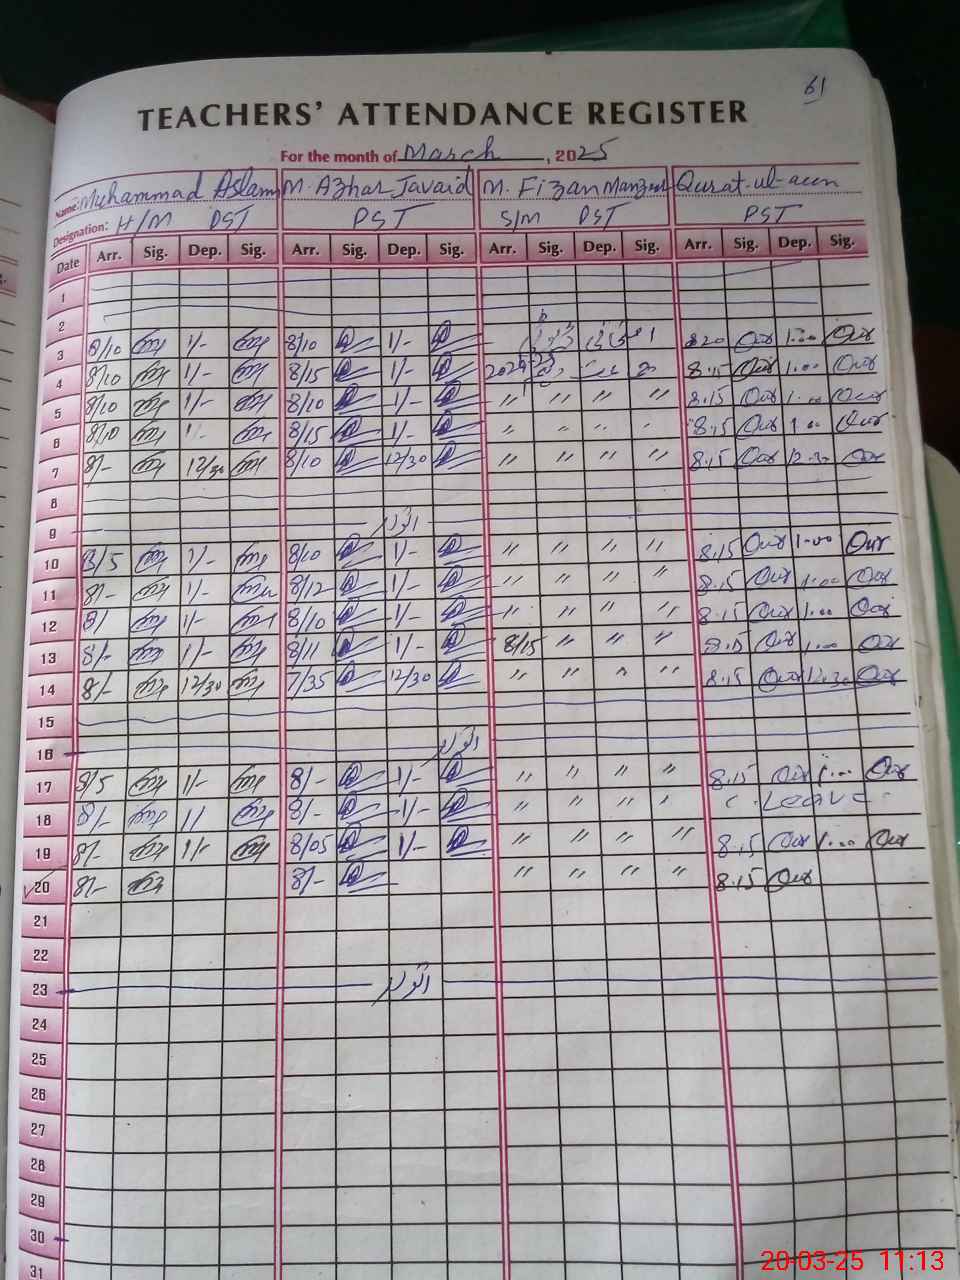 61
TEACHERS' ATTENDANCE REGISTER
For the month of March, 2025
Name: Muhammad Aslam M. Azhar Javaid M. Fizan Manzoor Qurat-ul-aen
Designation: H/M PST PST S/M PST PST
Date Arr. Sig. Dep. Sig. Arr. Sig. Dep. Sig. Arr. Sig. Dep. Sig. Arr. Sig. Dep. Sig.
1
2
3 8/10 1/- 8/10 1/- 8.20 Qur 1.00 Qur
4 8/10 1/- 8/15 1/- 8.15 Qur 1.00 Qur
5 8/10 1/- 8/10 1/- " " " " 8.15 Qur 1.00 Qur
6 8/10 1/- 8/15 1/- " " " " 8.15 Qur 1.00 Qur
7 8/- 12/30 8/10 12/30 " " " " 8.15 Qur 12.30 Qur
8
9 اتوار
10 8/5 1/- 8/10 1/- " " " " 8.15 Qur 1.00 Qur
11 8/- 1/- 8/12 1/- " " " " 8.15 Qur 1.00 Qur
12 8/ 1/- 8/10 1/- " " " " 8.15 Qur 1.00 Qur
13 8/- 1/- 8/11 1/- 8/15 " " " 8.15 Qur 1.00 Qur
14 8/- 12/30 7/35 12/30 " " " " 8.15 Qur 12.30 Qur
15
16 اتوار
17 8/5 1/- 8/- 1/- " " " " 8.15 Qur 1.00 Qur
18 8/- 1/ 8/- 1/- " " " " Leave
19 8/- 1/- 8/05 1/- " " " " 8.15 Qur 1.00 Qur
20 8/- 8/- " " " " 8.15 Qur
21
22
23 اتوار
24
25
26
27
28
29
30
31
20-03-25 11:13